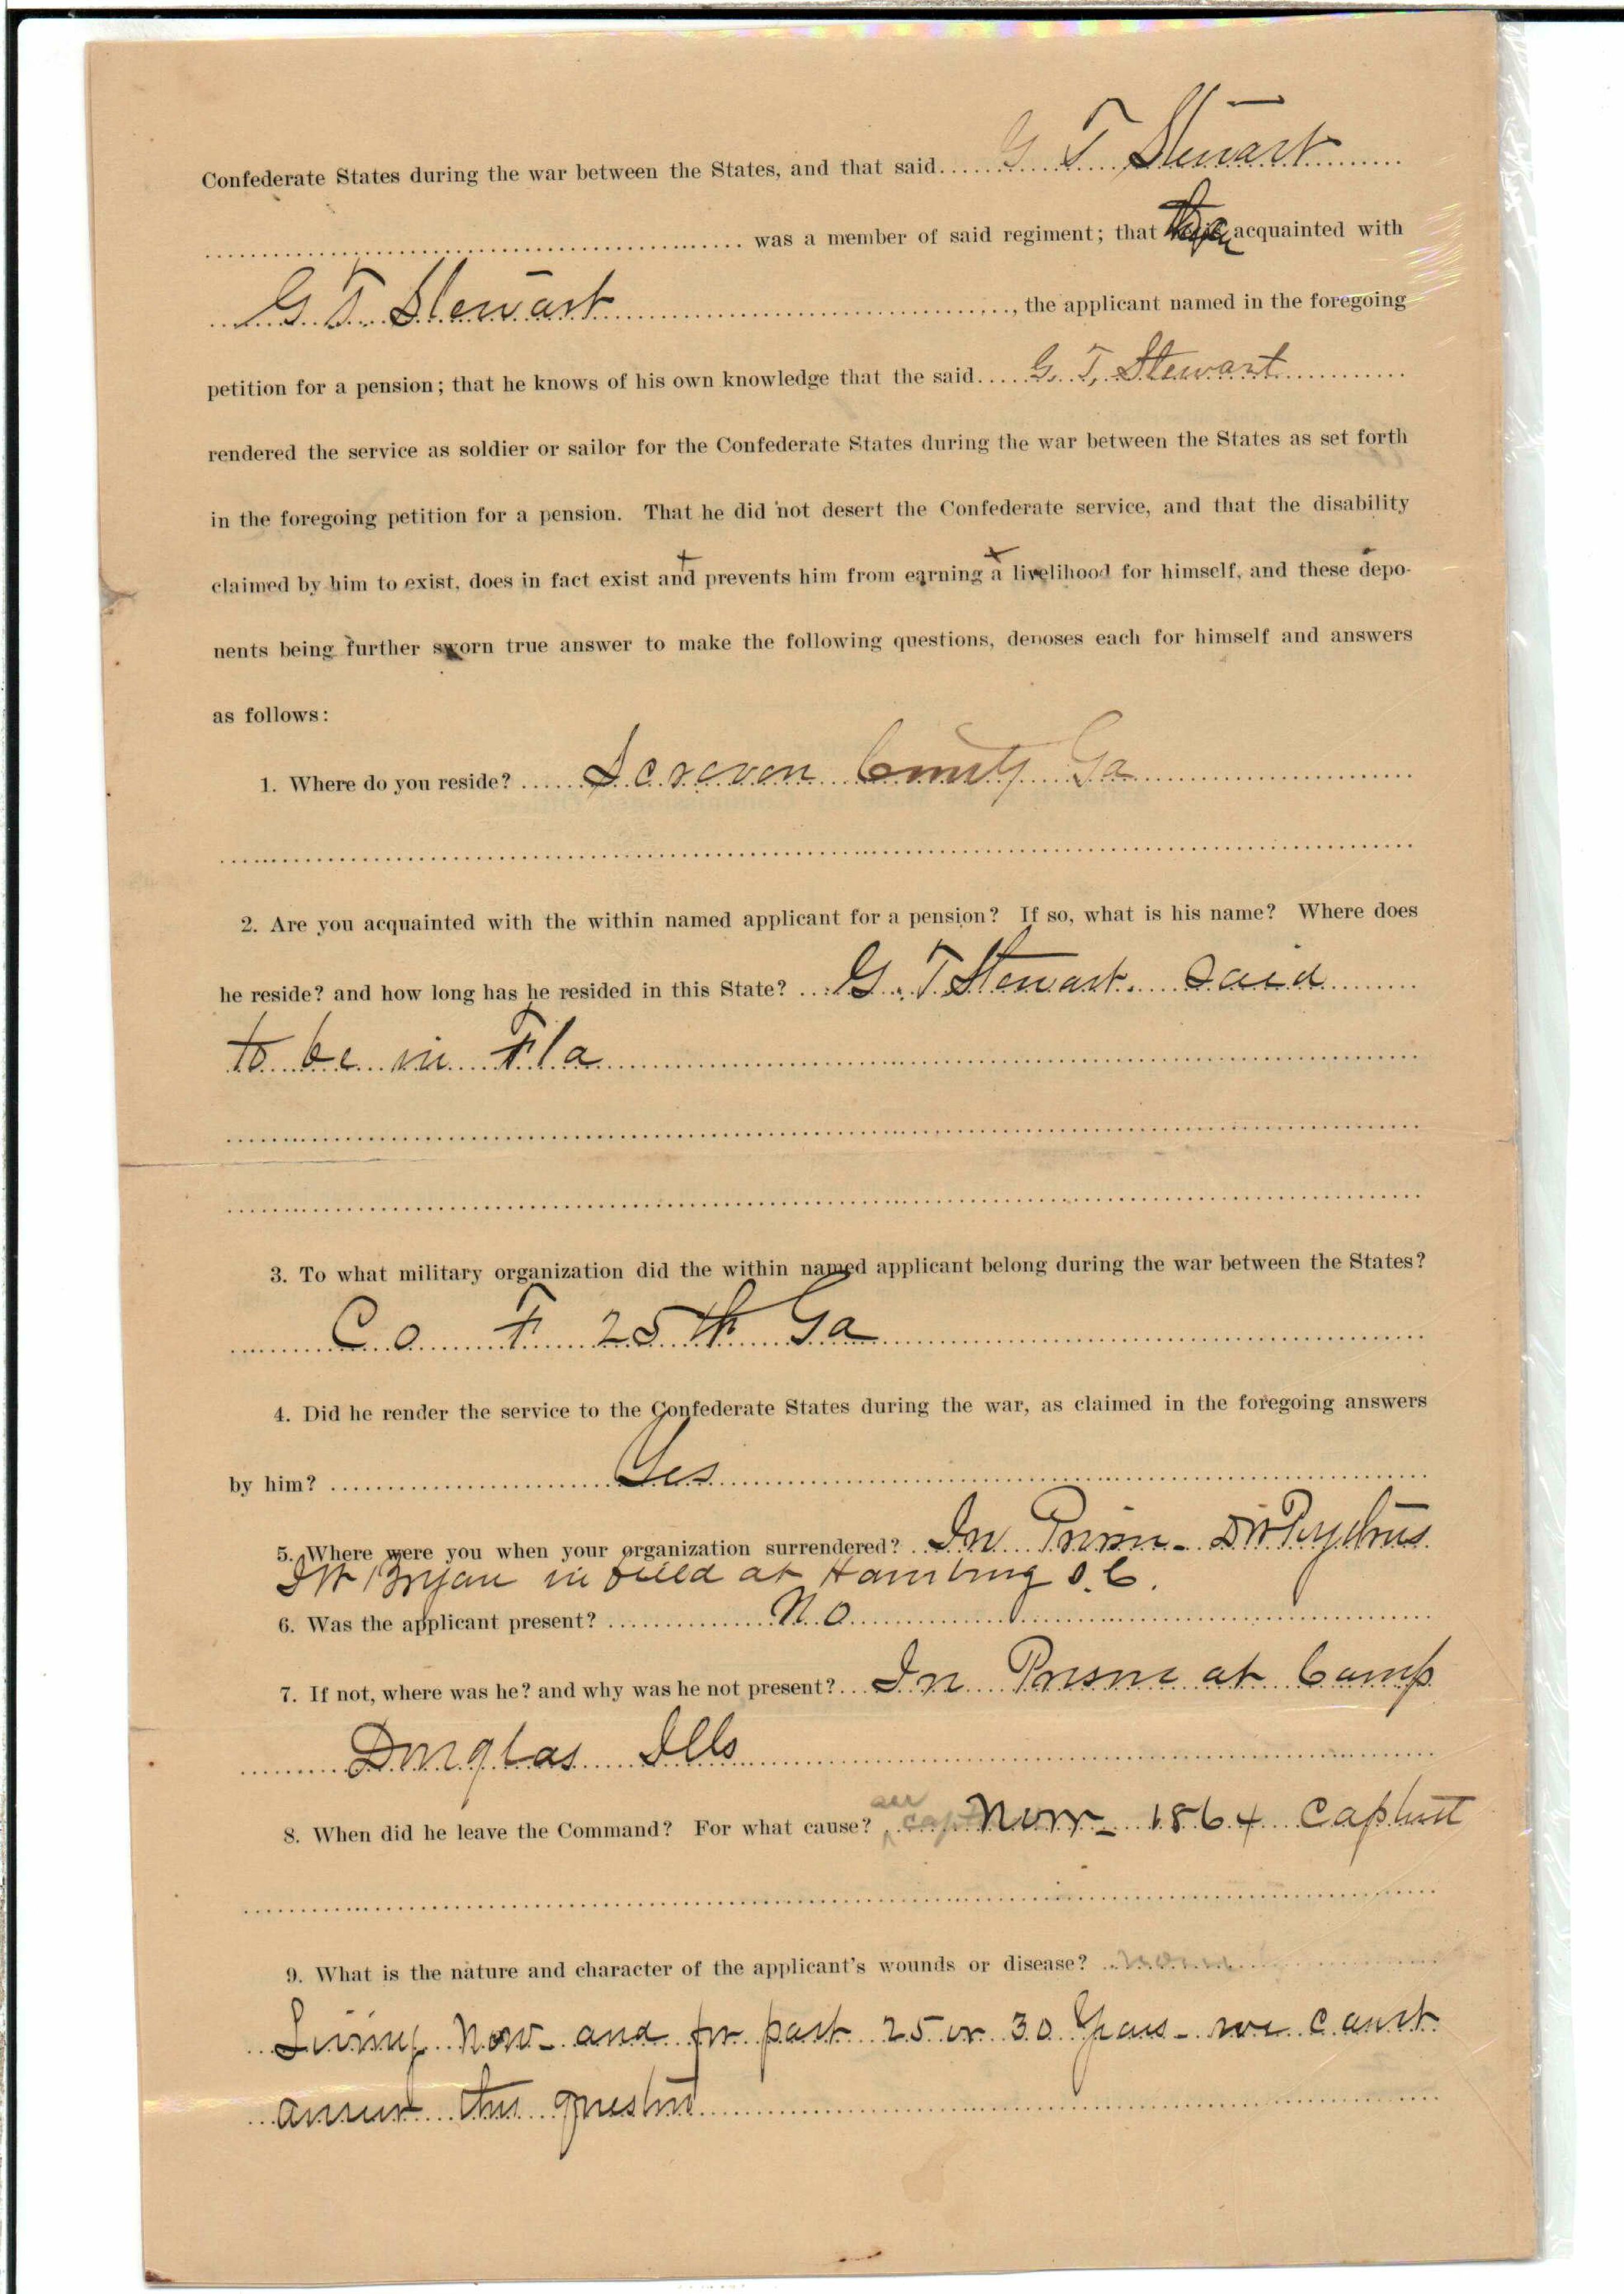 Confederate States during the war between the States, and that said G T Stewart
was a member of said regiment; that acquainted with
G T Stewart, the applicant named in the foregoing
petition for a pension; that he knows of his own knowledge that the said G. T. Stewart
rendered the service as soldier or sailor for the Confederate States during the war between the States as set forth
in the foregoing petition for a pension. That he did not desert the Confederate service, and that the disability
claimed by him to exist, does in fact exist and prevents him from earning a livelihood for himself, and these depo-
nents being further sworn true answer to make the following questions, denoses each for himself and answers
as follows:
1. Where do you reside? Screven County Ga
2. Are you acquainted with the within named applicant for a pension? If so, what is his name? Where does
he reside? and how long has he resided in this State? G. T Stewart. Said
to be in Fla
3. To what military organization did the within named applicant belong during the war between the States?
Co F 25th Ga
4. Did he render the service to the Confederate States during the war, as claimed in the foregoing answers
by him? Yes
5. Where were you when your organization surrendered? In Prison -
Bryan in field at Hamburg S. C.
6. Was the applicant present? No
7. If not, where was he? and why was he not present? In Prison at Camp
Douglas Ills
8. When did he leave the Command? For what cause? Nov - 1864
9. What is the nature and character of the applicant's wounds or disease?
Living now - and for past 25 or 30 Years - we cant
answer this question